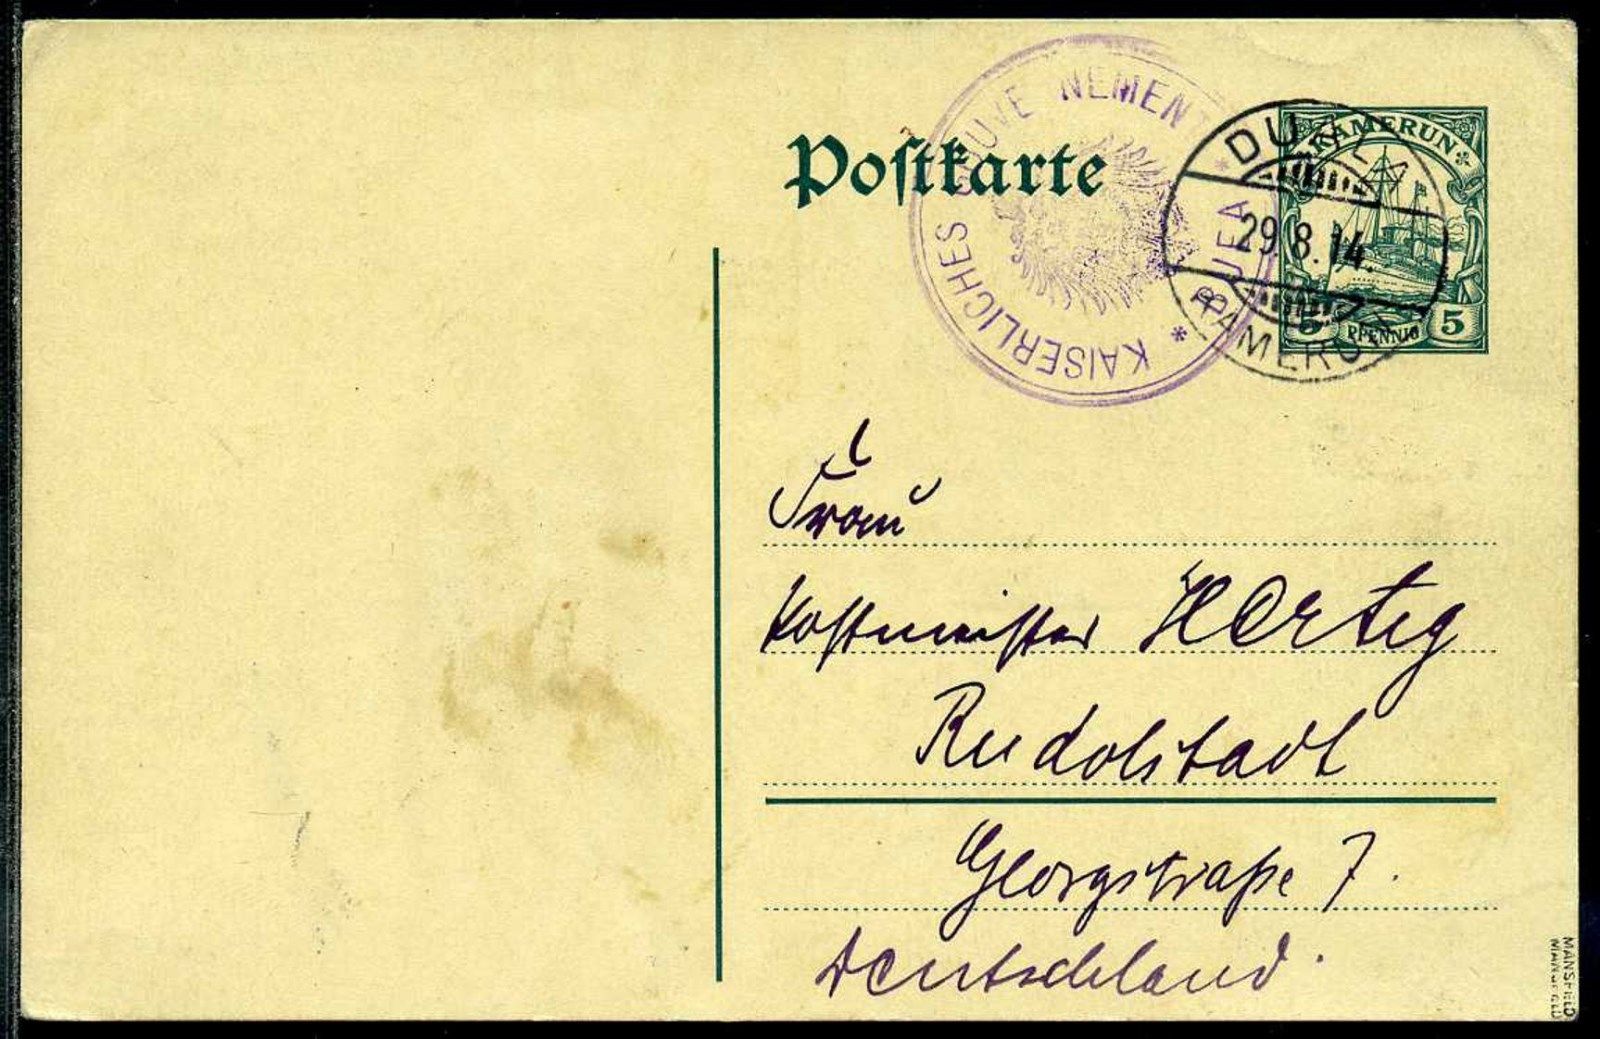 Postkarte
KAISERLICHES GOUVE NEMENT
BUEA
*
DUALA
29.8.14.
KAMERUN
KAMERUN
5 PFENNIG 5
Frau
Postmeister Hertig
Rudolstadt
Georgstraße 7.
Deutschland.
MANSFELD
MANSFELD